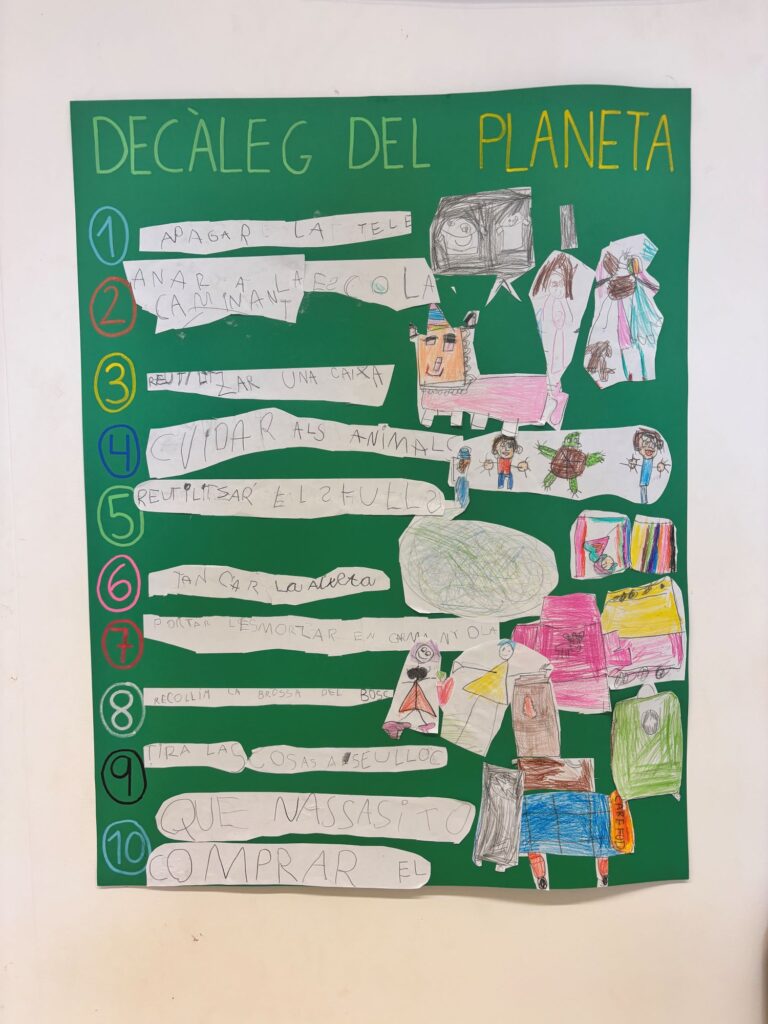 DECÀLEG DEL PLANETA
1 APAGAR LA TELE
2 ANAR A LA ESCOLA
CAMINANT
3 REUTILITZAR UNA CAIXA
4 CUIDAR ALS ANIMALS
5 REUTILITSAR ELS FULLS
6 TANCAR LA AIXETA
7 PORTAR L'ESMORZAR EN CARMANYOLA
8 RECOLLIM LA BROSSA DEL BOSC
9 TIRA LAS COSAS A SEU LLOC
QUE NASSASITO
10 COMPRAR EL
CAREFUT